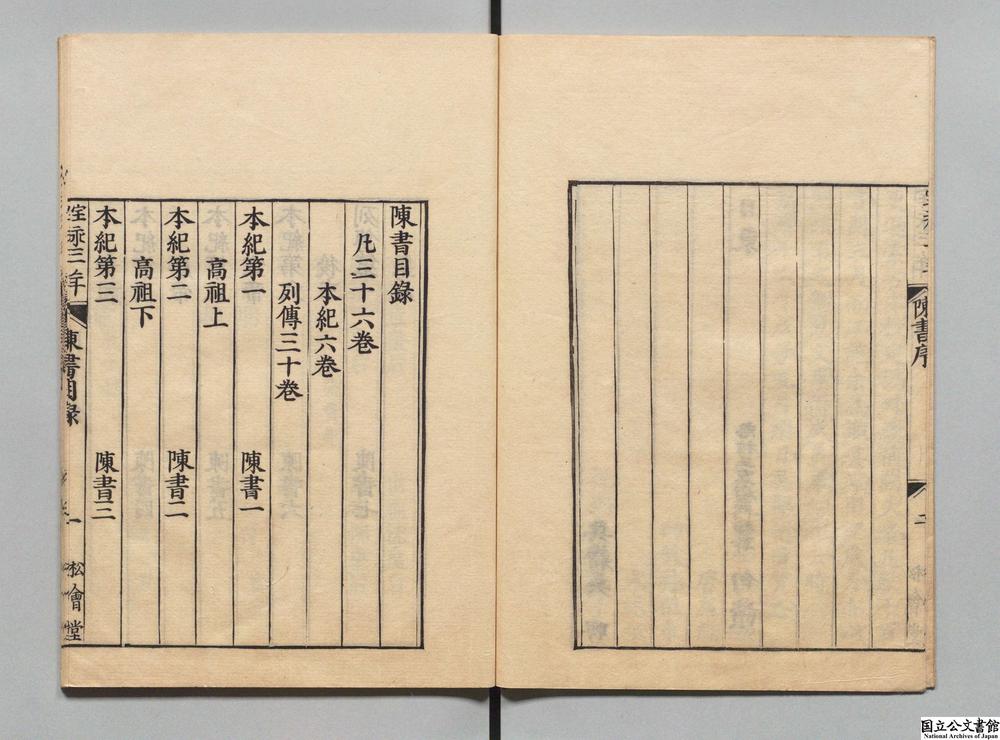 陳書序
二
陳書目録
凡三十六巻
本紀六巻
列傳三十巻
本紀第一 陳書一
高祖上
本紀第二 陳書二
高祖下
本紀第三 陳書三
宝永三年
陳書目録
一
松會堂
国立公文書館
National Archives of Japan